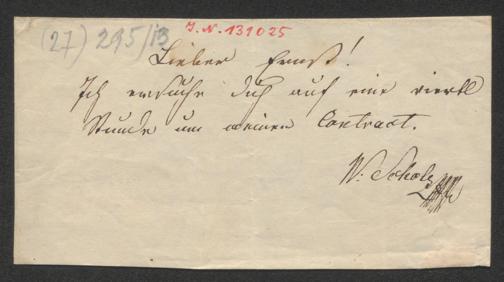 (27) 295/13
J.N. 131025
Lieber Ernst!
Ich ersuche dich auf eine viertl
Stunde um meinen Contract.
W. Scholz